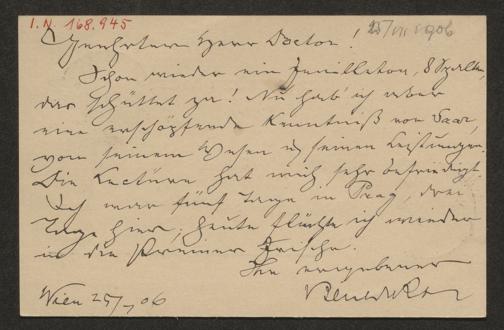 I. N. 168.945
25/VII 1906
Geehrtester Herr Doctor!
Schon wieder ein Feuilleton, 8 Spalten,
das schüttet ja! Nu hab' ich aber
eine erschöpfende Kenntniß von Saar,
von seinem Wesen u seinen Leistungen.
Die Lectüre hat mich sehr befriedigt.
Ich war fünf Tage in Prag, drei
Tage hier, heute flüchte ich wieder
in die Preiner Frische.
Ihr ergebener
Wien 25/ 06